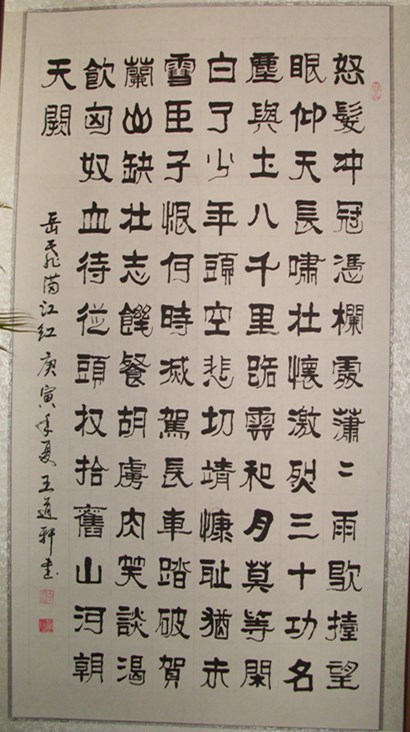 怒髮冲冠憑欄處瀟〻雨歇擡望
眼仰天長嘯壯懷激烈三十功名
塵與土八千里路雲和月莫等閑
白了少年頭空悲切靖慷恥猶未
雪臣子恨何時滅駕長車踏破賀
蘭山缺壯志饑餐胡虜肉笑談渴
飲匈奴血待從頭收拾舊山河朝
天闕
岳飛滿江紅庚寅年夏王道軒書